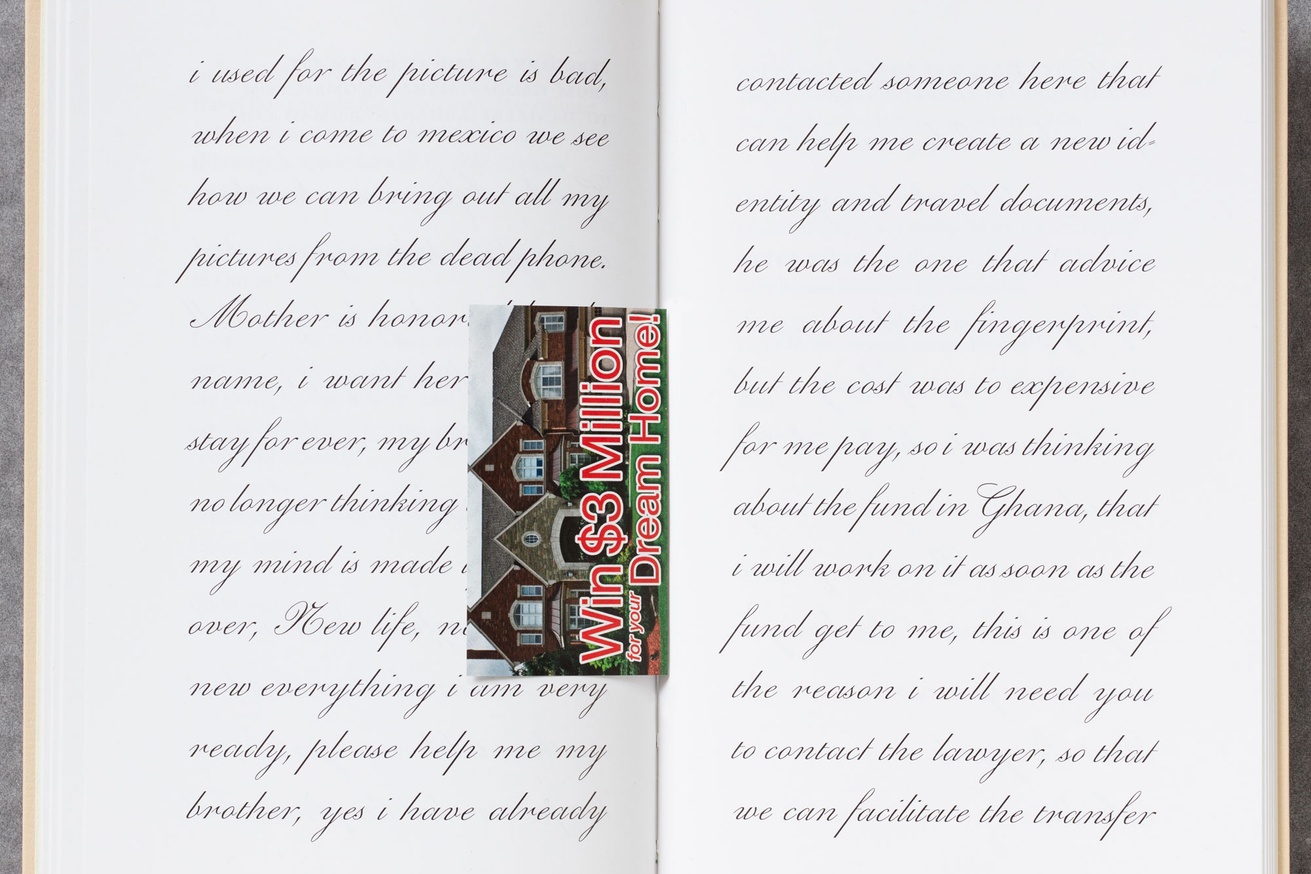 i used for the picture is bad,
when i come to mexico we see
how we can bring out all my
pictures from the dead phone.
Mother is
name, i want her
stay for ever, my
no longer thinking
my mind is made
over, New life,
new everything i am very
ready, please help me my
brother, yes i have already
Win $3 Million
for your Dream Home!
contacted someone here that
can help me create a new id-
entity and travel documents,
he was the one that advice
me about the fingerprint,
but the cost was to expensive
for me pay, so i was thinking
about the fund in Ghana, that
i will work on it as soon as the
fund get to me, this is one of
the reason i will need you
to contact the lawyer, so that
we can facilitate the transfer